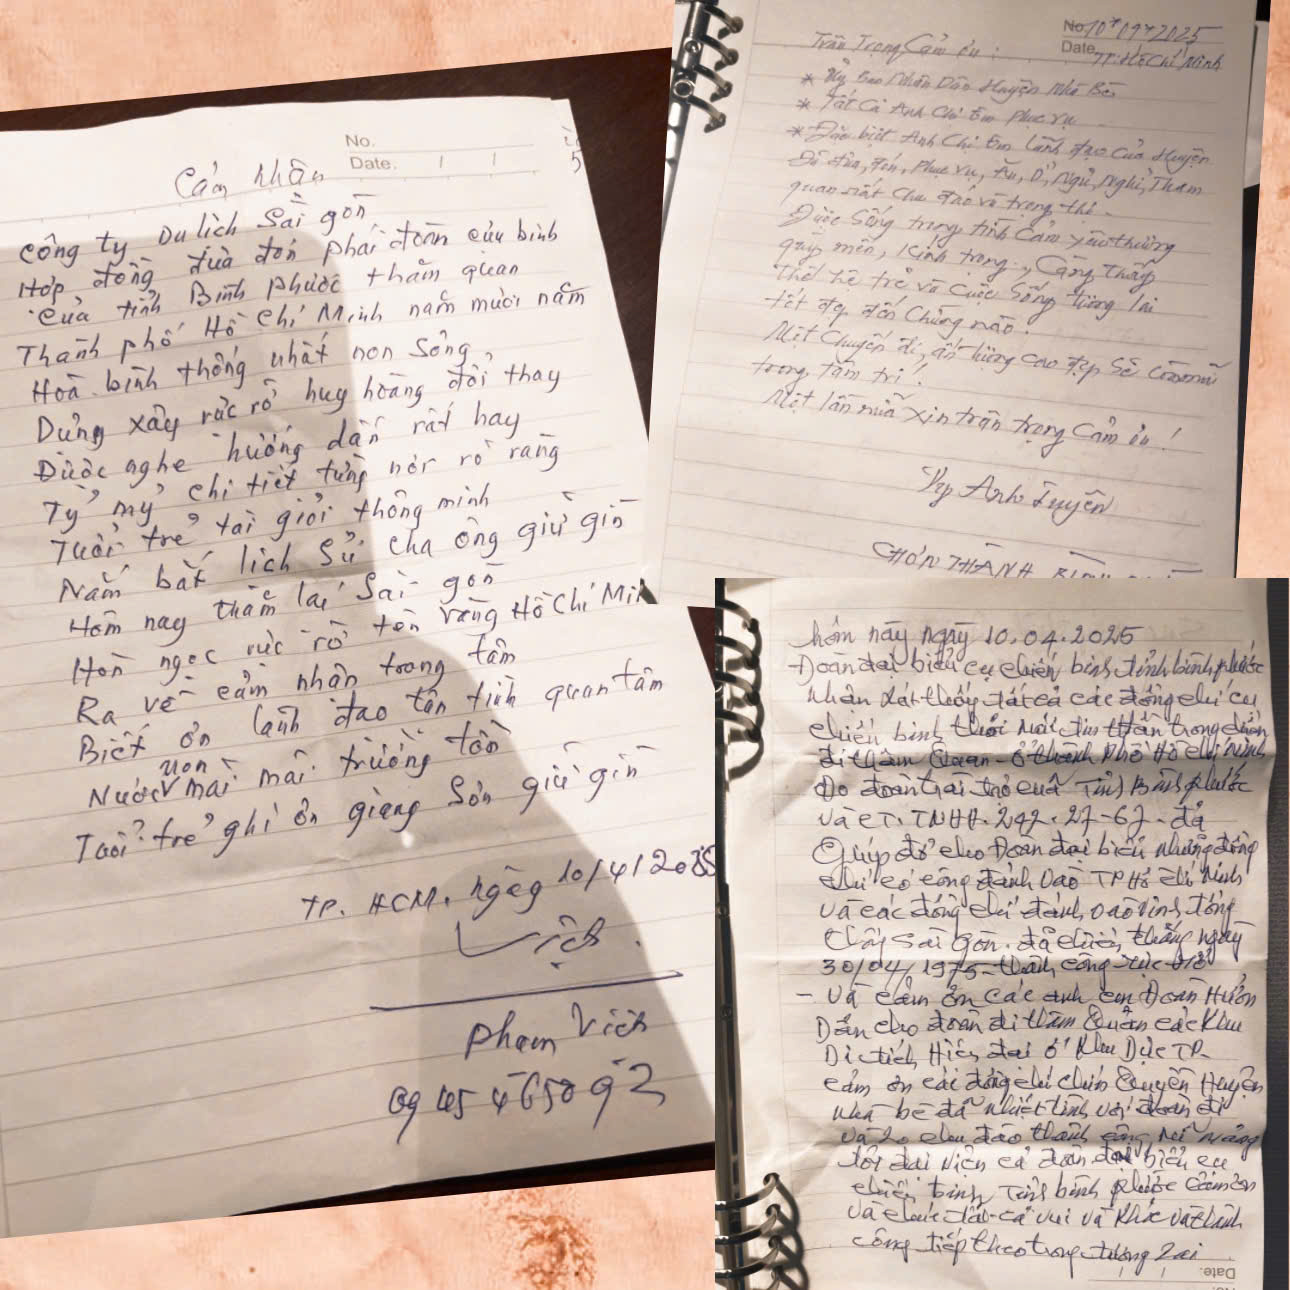 No.
Date.
Cảm nhận
Công ty Du lịch Sài gòn
Hợp đồng đưa đón phái đoàn cựu binh
Của tỉnh Bình phước thăm quan
Thành phố Hồ Chí Minh năm mươi năm
Hoà bình thống nhất non Sông
Dựng xây rực rỡ huy hoàng đổi thay
Được nghe hướng dẫn rất hay
Tỷ mỷ chi tiết từng nơi rõ ràng
Tuổi trẻ tài giỏi thông minh
Nắm bắt lịch Sử cha ông giữ gìn
Hôm nay thăm lại Sài gòn
Hòn ngọc rực rỡ tên vàng Hồ Chí Min
Ra về cảm nhận trong tâm
Biết ơn lãnh đạo tận tình quan tâm
Nước non mãi mãi trường tồn
Tuổi trẻ ghi ơn giang Sơn giữ gìn
TP. HCM. ngày 10/4/2025
Vích
Phạm Vích
No 10*09*2025
Date TP: Hồ Chí Minh
Trân Trọng Cảm ơn :
* Uỷ Ban Nhân Dân Huyện Nhà Bè
* Tất Cả Anh Chị Em phục vụ
* Đặc biệt Anh Chị Em lãnh đạo Của Huyện
Đã đưa, đón, phục vụ, Ăn, Ở, Ngủ, Nghỉ, Tham
quan rất Chu đáo và trọng thể.
Được Sống trong tình Cảm yêu thương
quý mến, Kính trọng., Càng Thấy
Thế hệ trẻ và Cuộc Sống tương lai
tốt đẹp đến Chừng nào.
Một Chuyến đi, ấn tượng cao đẹp Sẽ còn mãi
trong tâm trí !
Một lần nữa xin trân trọng Cảm ơn !
Anh Luyện
CHƠN THÀNH
hôm nay ngày 10.04.2025
Đoàn đại biểu cựu chiến binh tỉnh bình phước
nhận xét thấy tất cả các đồng chí cựu
chiến binh tinh thần trong chuyến
đi thăm Quan ở thành Phố Hồ chí Minh
do đoàn tài trợ của Tỉnh Bình phước
và CT. TNHH. 247. 27-67. đã
Giúp đỡ cho Đoàn đại biểu những đồng
chí có công đánh vào TP Hồ chí Minh
và các đồng chí đánh vào dinh tổng
thống Sài Gòn. đã chiến thắng ngày
30/04/1975 thành công rực rỡ
- Và cảm ơn các anh em Đoàn Hướn
Dẫn cho đoàn đi thăm Quan các Khu
Di tích Hiện đại ở Khu vực TP.
cảm ơn các đồng chí chính Quyền Huyện
nhà bè đã nhiệt tình với đoàn đi
và chu đáo thành công
tôi đại diện cả đoàn đại biểu cựu
chiến binh Tỉnh bình phước cảm ơn
và chúc tất cả vui và khỏe và thành
công tiếp theo trong tương lai.
Date: